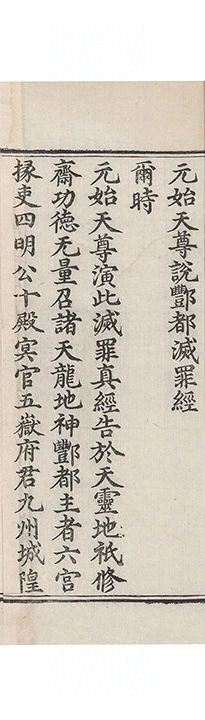 元始天尊說酆都滅罪經
爾時
元始天尊演此滅罪真經告於天靈地祇修
齋功德无量召諸天龍地神酆都主者六宮
掾吏四明公十殿冥官五嶽府君九州城隍